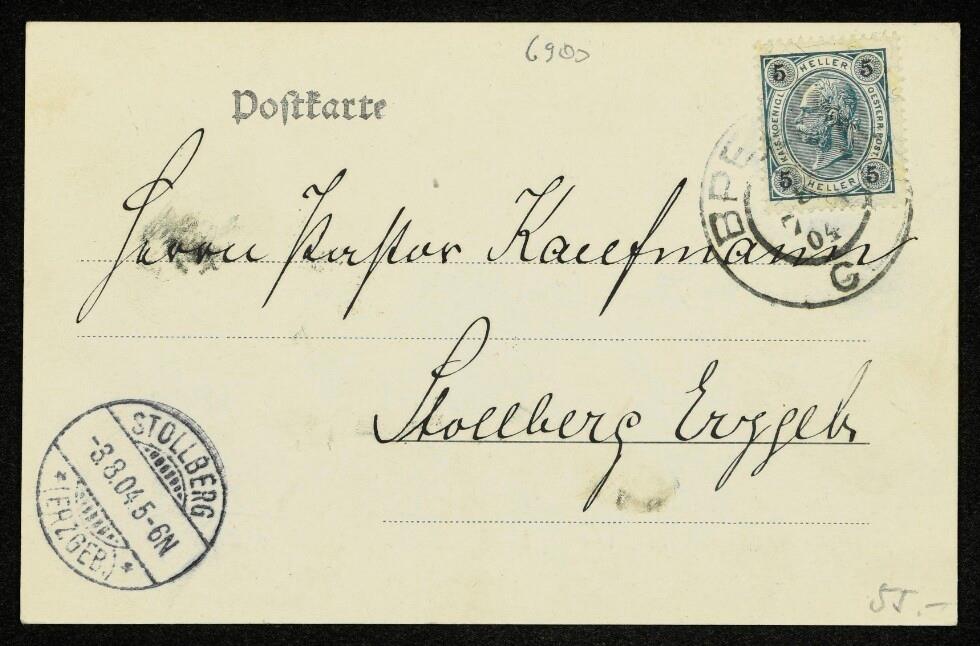 6900
Postkarte
5 HELLER 5
KAIS. KOENIGL. OESTERR. POST.
5 HELLER 5
04
C
Herrn Pastor Kaufmann
Stollberg Erzgeb.
STOLLBERG
-3.8.04.5-6N
* (ERZGEB.) *
55.-